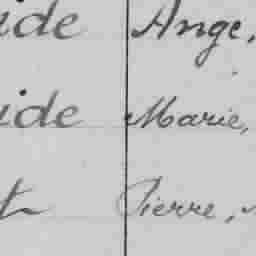 ide Ange,
ide Marie,
t Pierre,